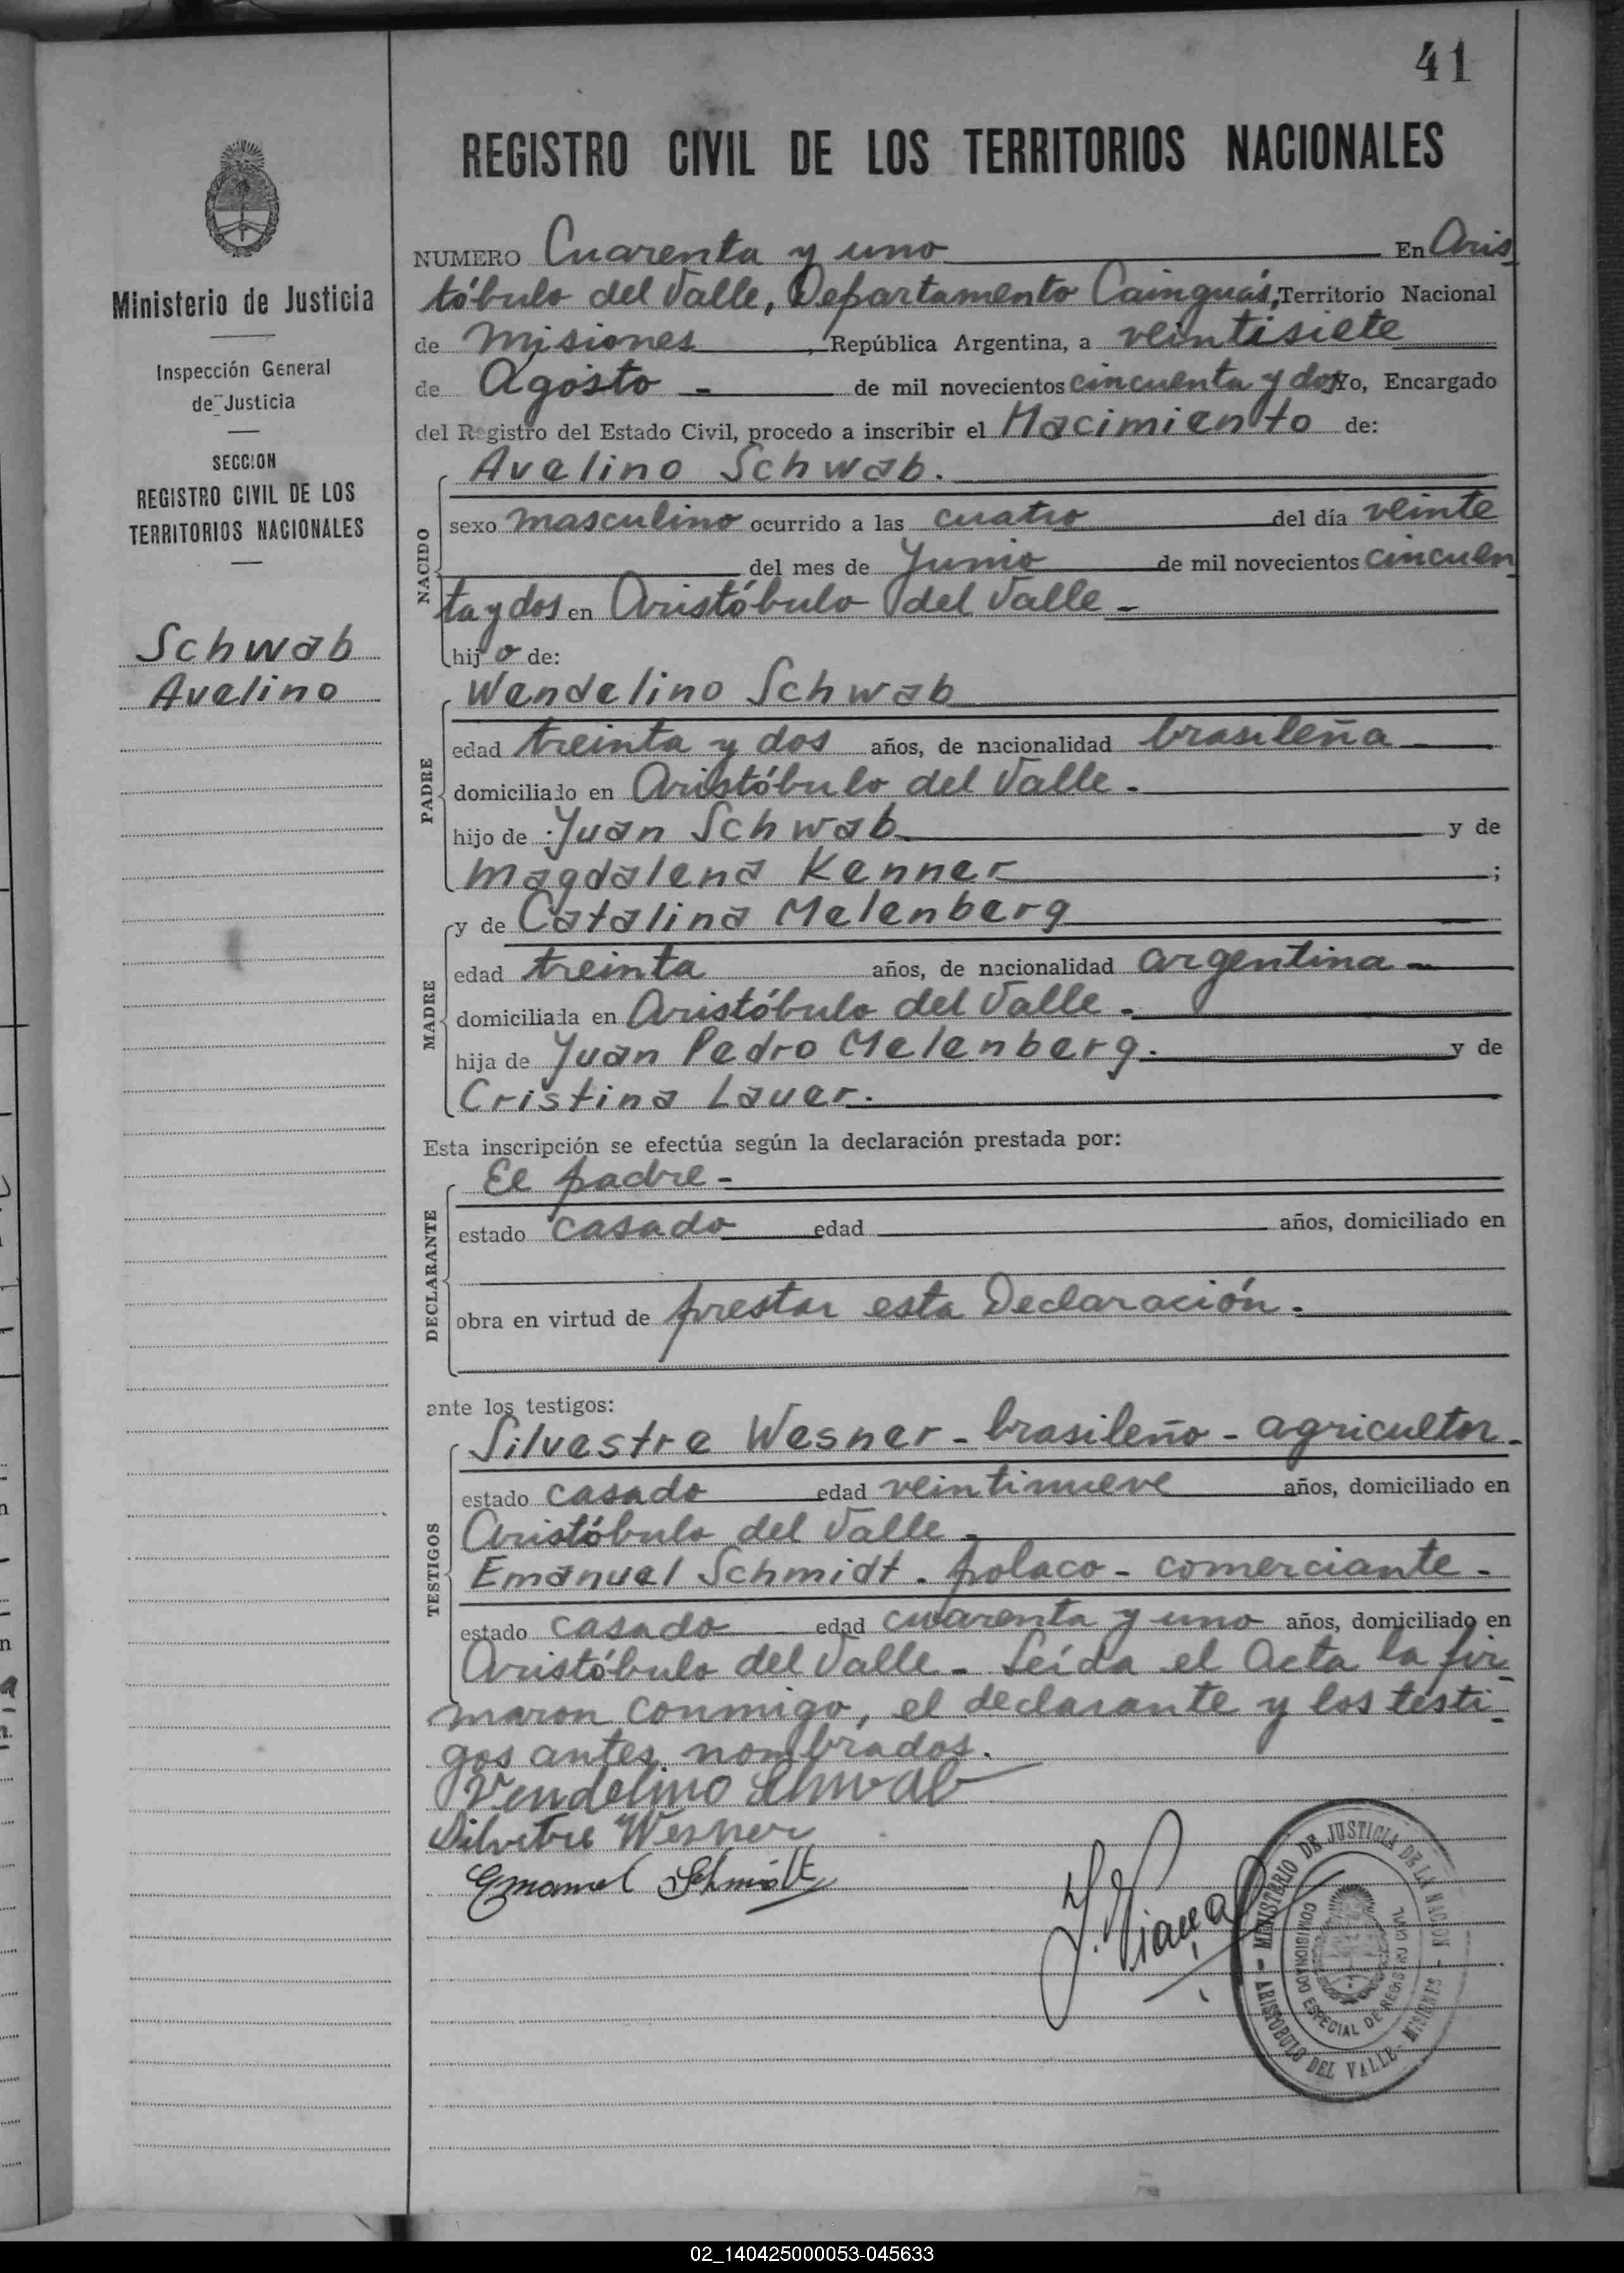 41
REGISTRO CIVIL DE LOS TERRITORIOS NACIONALES
Ministerio de Justicia
Inspección General
de Justicia
SECCION
REGISTRO CIVIL DE LOS
TERRITORIOS NACIONALES
Schwab
Avelino
NUMERO Cuarenta y uno En Aris
tóbulo del Valle, Departamento Cainguás, Territorio Nacional
de Misiones, República Argentina, a veintisiete
de Agosto - de mil novecientos cincuenta y dos Yo, Encargado
del Registro del Estado Civil, procedo a inscribir el Nacimiento de:
NACIDO
Avelino Schwab.
sexo masculino ocurrido a las cuatro del día veinte
del mes de Junio de mil novecientos cincuen
ta y dos en Aristóbulo del Valle -
hijo de:
PADRE
Wendelino Schwab
edad treinta y dos años, de nacionalidad brasileña
domiciliado en Aristóbulo del Valle.
hijo de Juan Schwab y de
Magdalena Kenner ;
MADRE
y de Catalina Melenberg
edad treinta años, de nacionalidad argentina -
domiciliada en Aristóbulo del Valle.
hija de Juan Pedro Melenberg. y de
Cristina Lauer.
Esta inscripción se efectúa según la declaración prestada por:
DECLARANTE
El padre -
estado casado edad años, domiciliado en
obra en virtud de prestar esta Declaración.
ante los testigos:
TESTIGOS
Silvestre Wesner - brasileño - agricultor -
estado casado edad veintinueve años, domiciliado en
Aristóbulo del Valle -
Emanuel Schmidt - polaco - comerciante -
estado casado edad cuarenta y uno años, domiciliado en
Aristóbulo del Valle - Leída el Acta la fir-
maron conmigo, el declarante y los testi-
gos antes nombrados.
Vendelino Schwab
Silvestre Wesner
Emanuel Schmidt
MINISTERIO DE JUSTICIA DE LA NACION
- ARISTOBULO DEL VALLE - MISIONES -
COMISIONADO ESPECIAL DE REGISTRO CIVIL
02_140425000053-045633